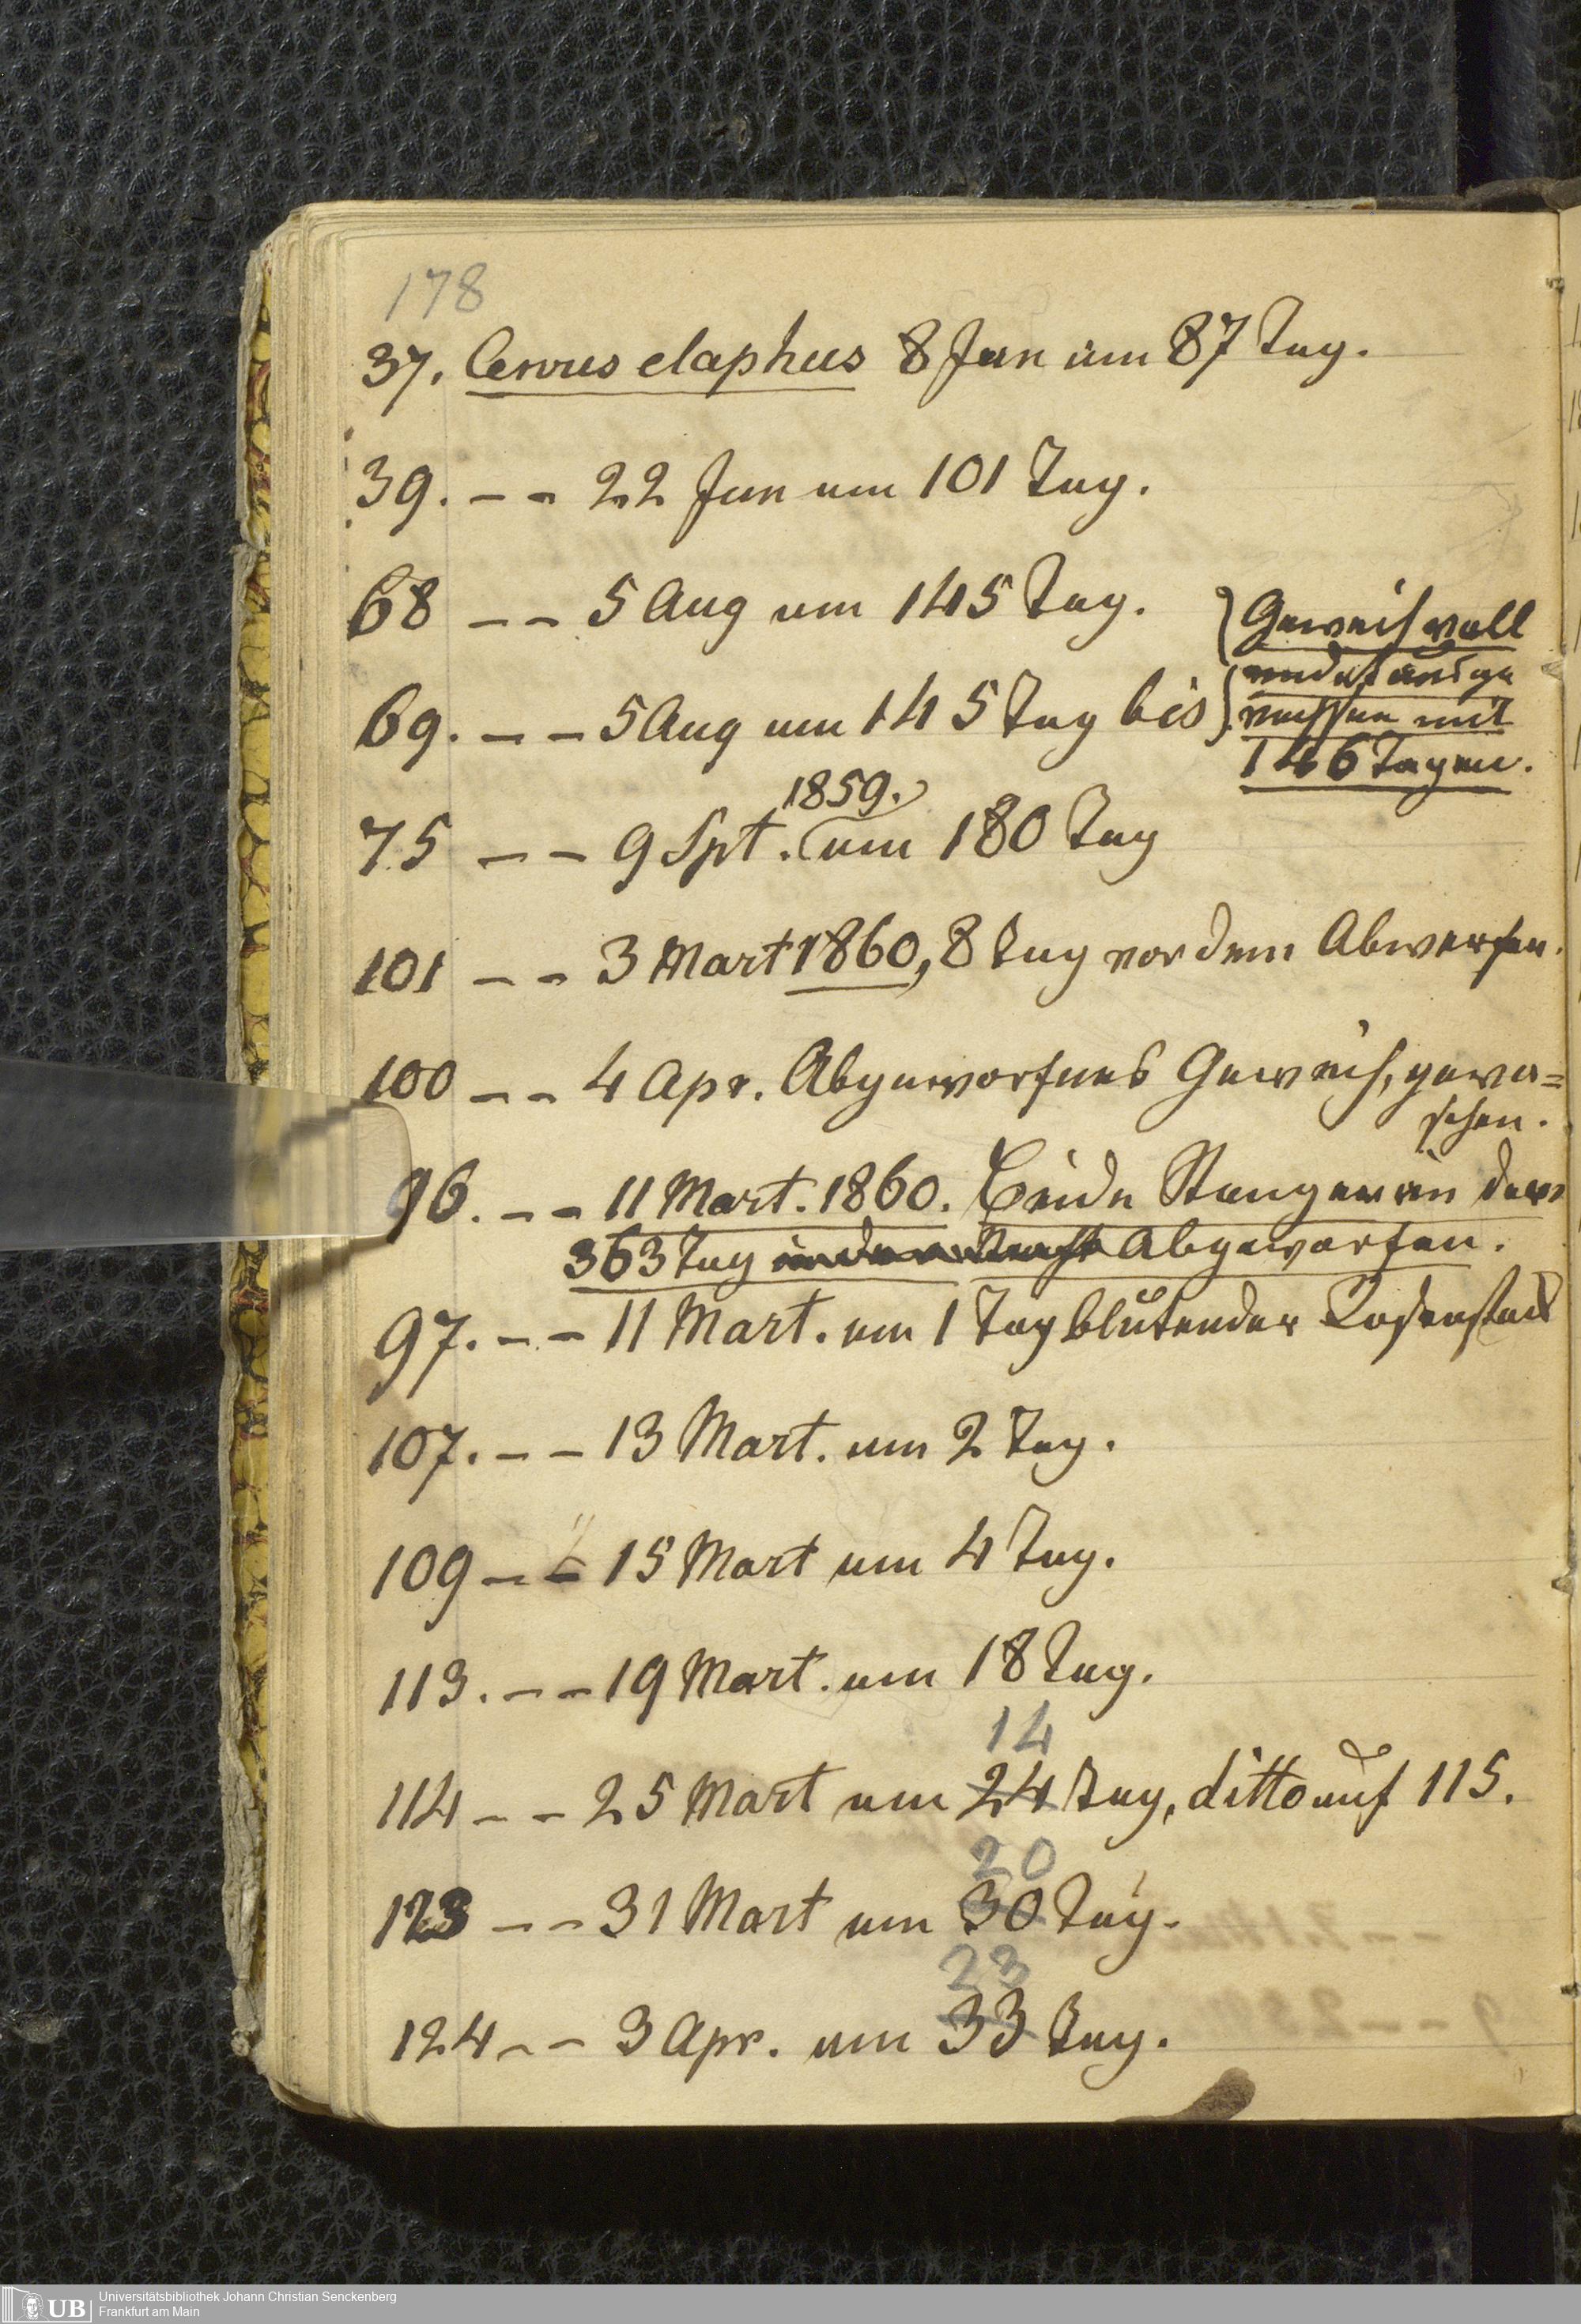 178
37. Cervus elaphus 8 Jun um 87 Tag.
39. – – 22 Jun um 101 Tag.
68 – – 5 Aug um 145 Tag.
} Geweih voll
endet
69. – – 5 Aug um 145 Tag bis
mit
146 Tagen.
1859.
75 – – 9 Spt. um 180 Tag
101 – – 3 Mart 1860, 8 Tag vor dem Abwerfen.
100 – – 4 Apr. Abgeworfnes Geweih, gewa=
schen.
96. – – 11 Mart. 1860. Beide Stangen in der
363 Tag in der Nacht Abgeworfen.
97. – – 11 Mart. um 1 Tag blutender Rosenstock
107. – – 13 Mart. um 2 Tag.
109 – – 15 Mart um 4 Tag.
113. – – 19 Mart. um 18 Tag.
14
114 – – 25 Mart um 24 Tag, ditto auf 115.
20
123 – – 31 Mart um 30 Tag.
23
124 – – 3 Apr. um 33 Tag.
UB
Universitätsbibliothek Johann Christian Senckenberg
Frankfurt am Main